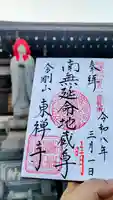 奉拝
令和八年
三月一日
南無延命地蔵尊
今剛山
東禅寺